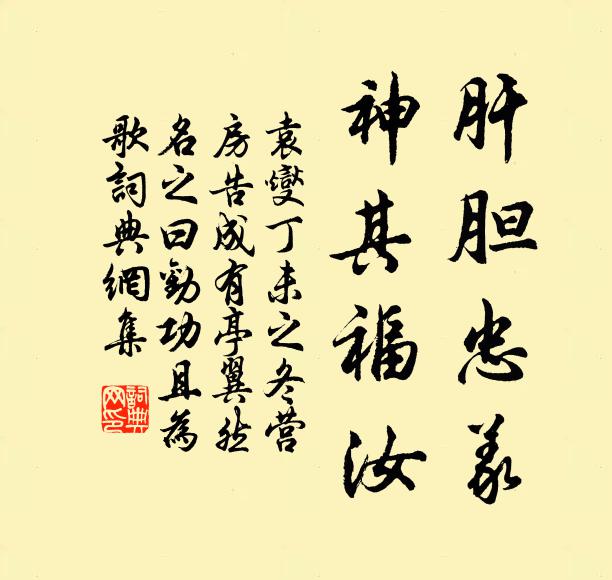 肝胆忠义
神其福汝
袁燮丁未之冬营
房告成有亭翼然
名之曰劝功且为
歌詞典網集
詞典網印